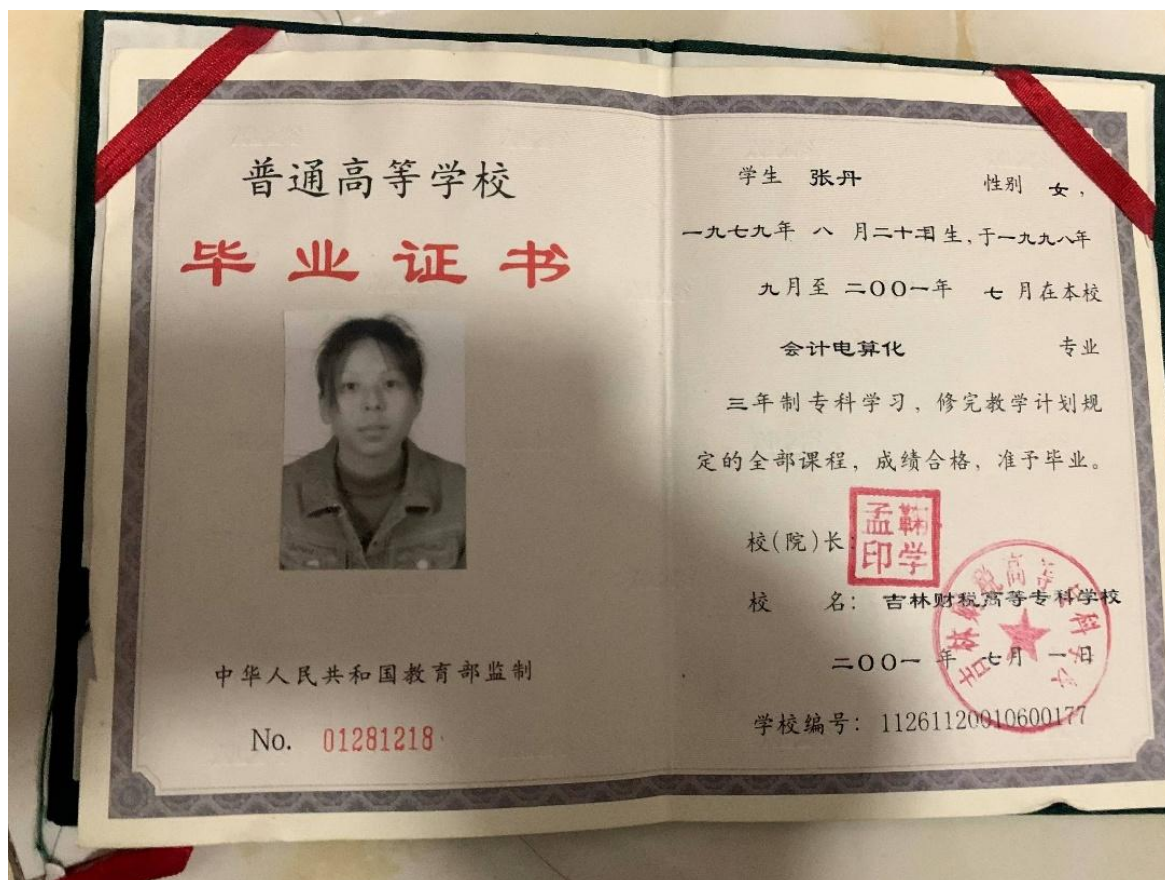 普通高等学校
毕业证书
中华人民共和国教育部监制
No. 01281218
学生 张丹 性别 女,
一九七九年 八 月二十 日生,于一九九八年
九月至 二〇〇一年 七 月在本校
会计电算化 专业
三年制专科学习,修完教学计划规
定的全部课程,成绩合格,准予毕业。
校(院)长:
孟鞠
印学
校 名: 吉林财税高等专科学校
二〇〇一 年 七月 一日
学校编号: 11261120010600177
吉林财税高等专科学校